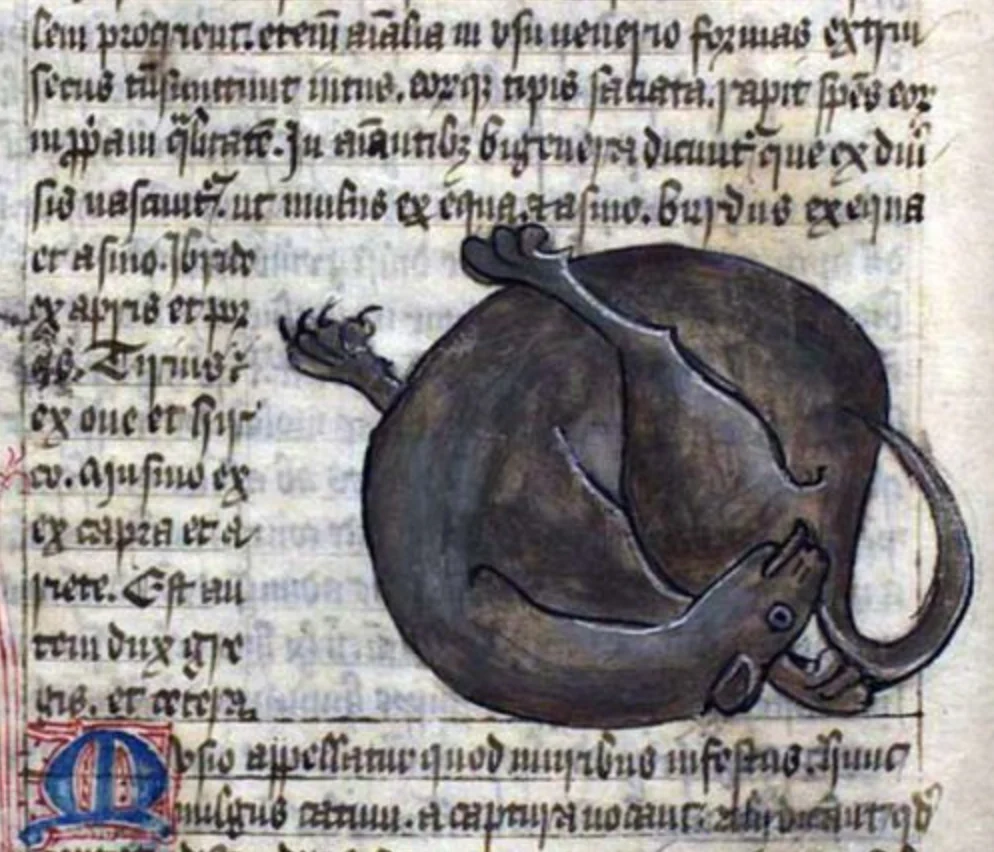 lem procreent. eteni aialia in usu venerio formas extrin
secus tnsmittunt intus. eorq; tipis saciata. rapit spes eor
in ppam qlitate. In aiantib; bigenera dicunt que ex diu
sis nascunt. ut mulus ex equa. et asino. burdus ex equa
et asino. Ibride
ex apris et por
cis. Tirius
ex oue et hir
co. Musino ex
ex capra et a
riete. Est au
tem dux gre
gis. et cetera.
Musio appellatur quod muribus infestus. hunc
uulgus catum. a captura uocant. alii dicunt qd